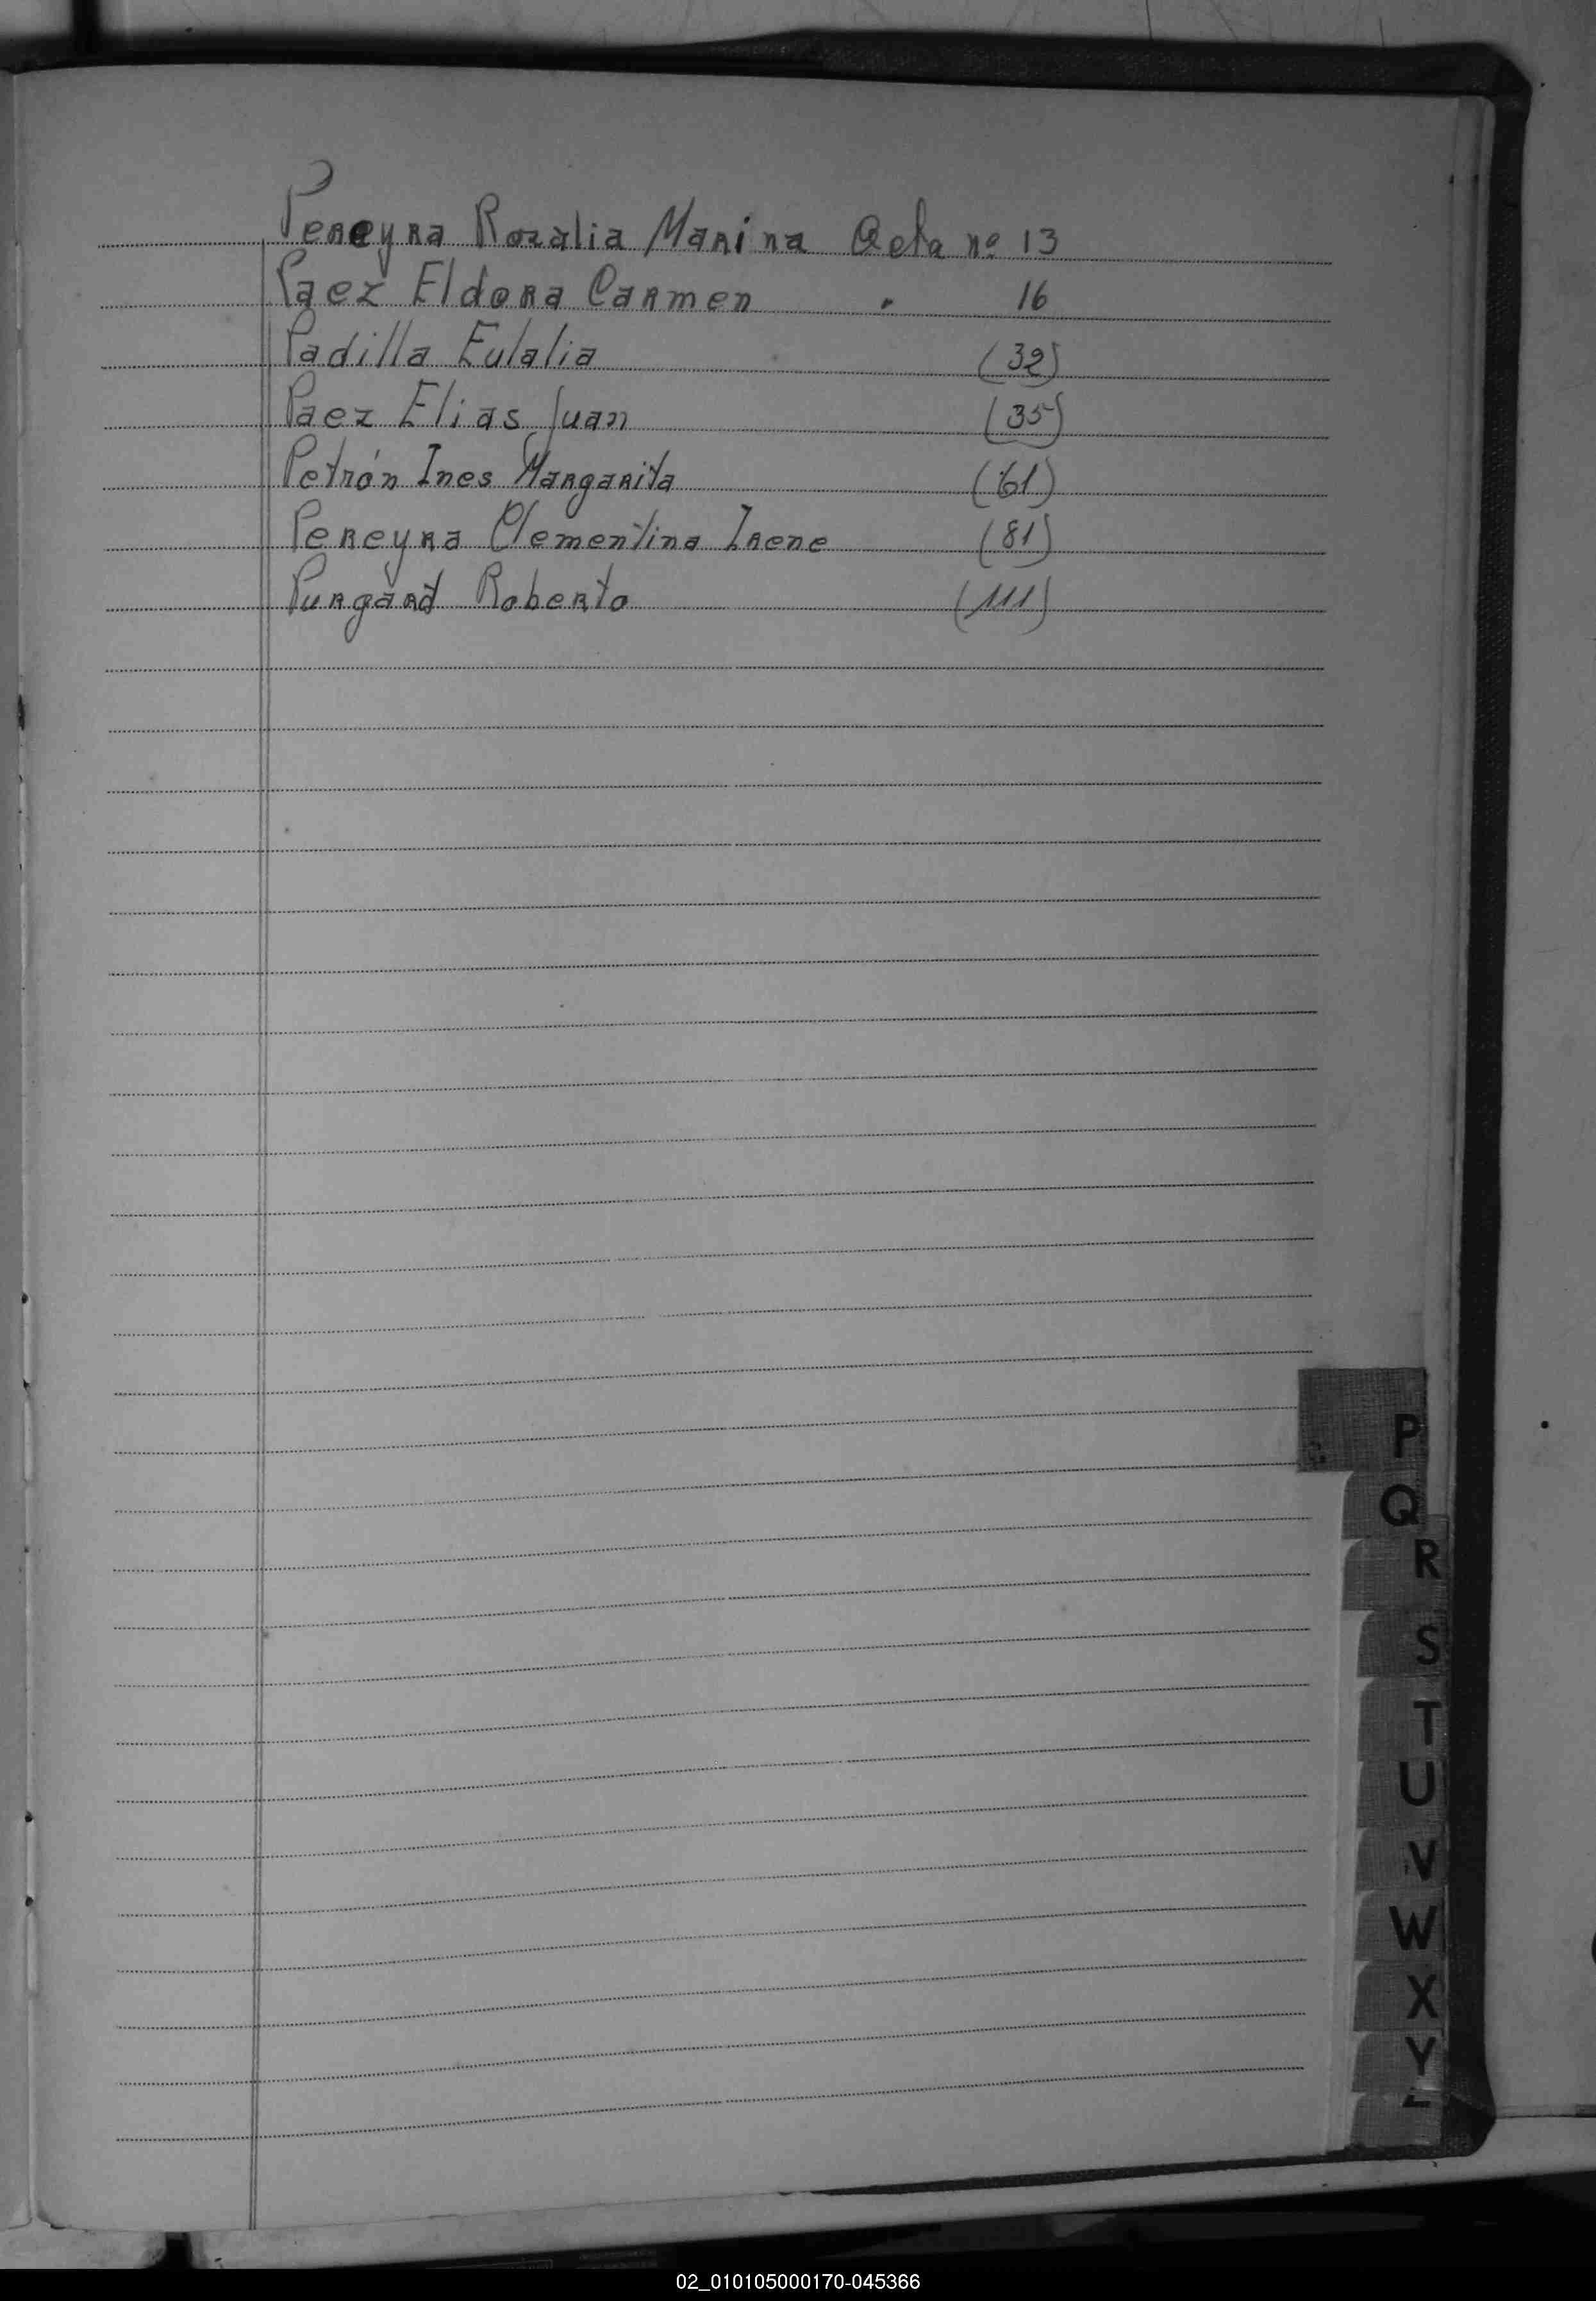 Pereyra Rozalia Marina Acta nº 13
Paez Eldora Carmen " 16
Padilla Eulalia (32)
Paez Elias Juan (35)
Petrón Ines Margarita (61)
Pereyra Clementina Irene (81)
Purgard Roberto (111)
P
Q
R
S
T
U
V
W
X
Y
Z
02_010105000170-045366